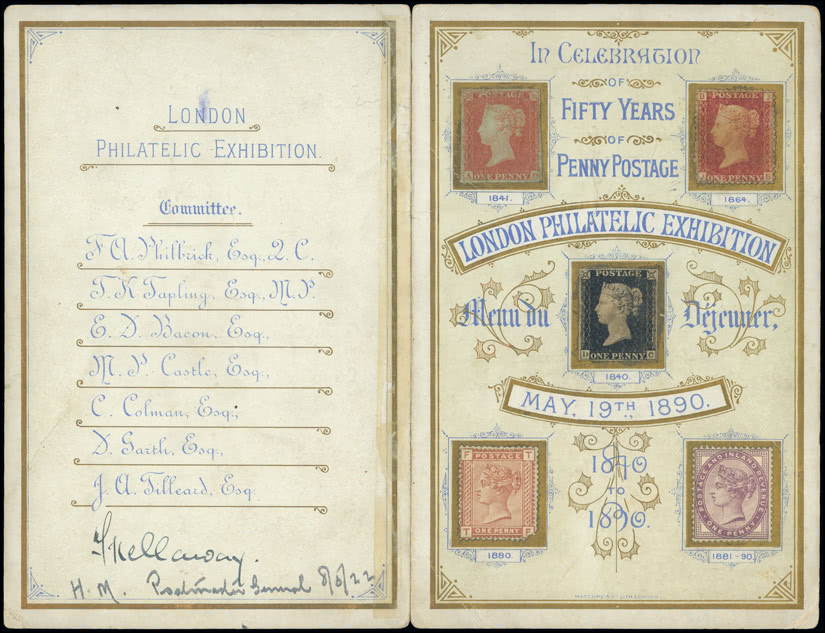 LONDON
PHILATELIC EXHIBITION.
Committee.
F. A. Philbrick, Esq., Q. C.
T. K. Tapling, Esq., M.P.
E. D. Bacon, Esq.,
M. P. Castle, Esq.,
C. Colman, Esq.,
D. Garth, Esq.,
J. A. Tilleard, Esq.
F Kellaway.
H. M. Postmaster General 8/6/22
IN CELEBRATION
OF
FIFTY YEARS
OF
PENNY POSTAGE
POSTAGE
ONE PENNY
1841.
POSTAGE
ONE PENNY
1864.
LONDON PHILATELIC EXHIBITION
Menu du Déjeuner,
POSTAGE
D ONE PENNY C
1840.
MAY, 19TH 1890.
1840
TO
1890.
F POSTAGE T
T ONE PENNY F
1880.
POSTAGE AND INLAND REVENUE
ONE PENNY
1881-90.